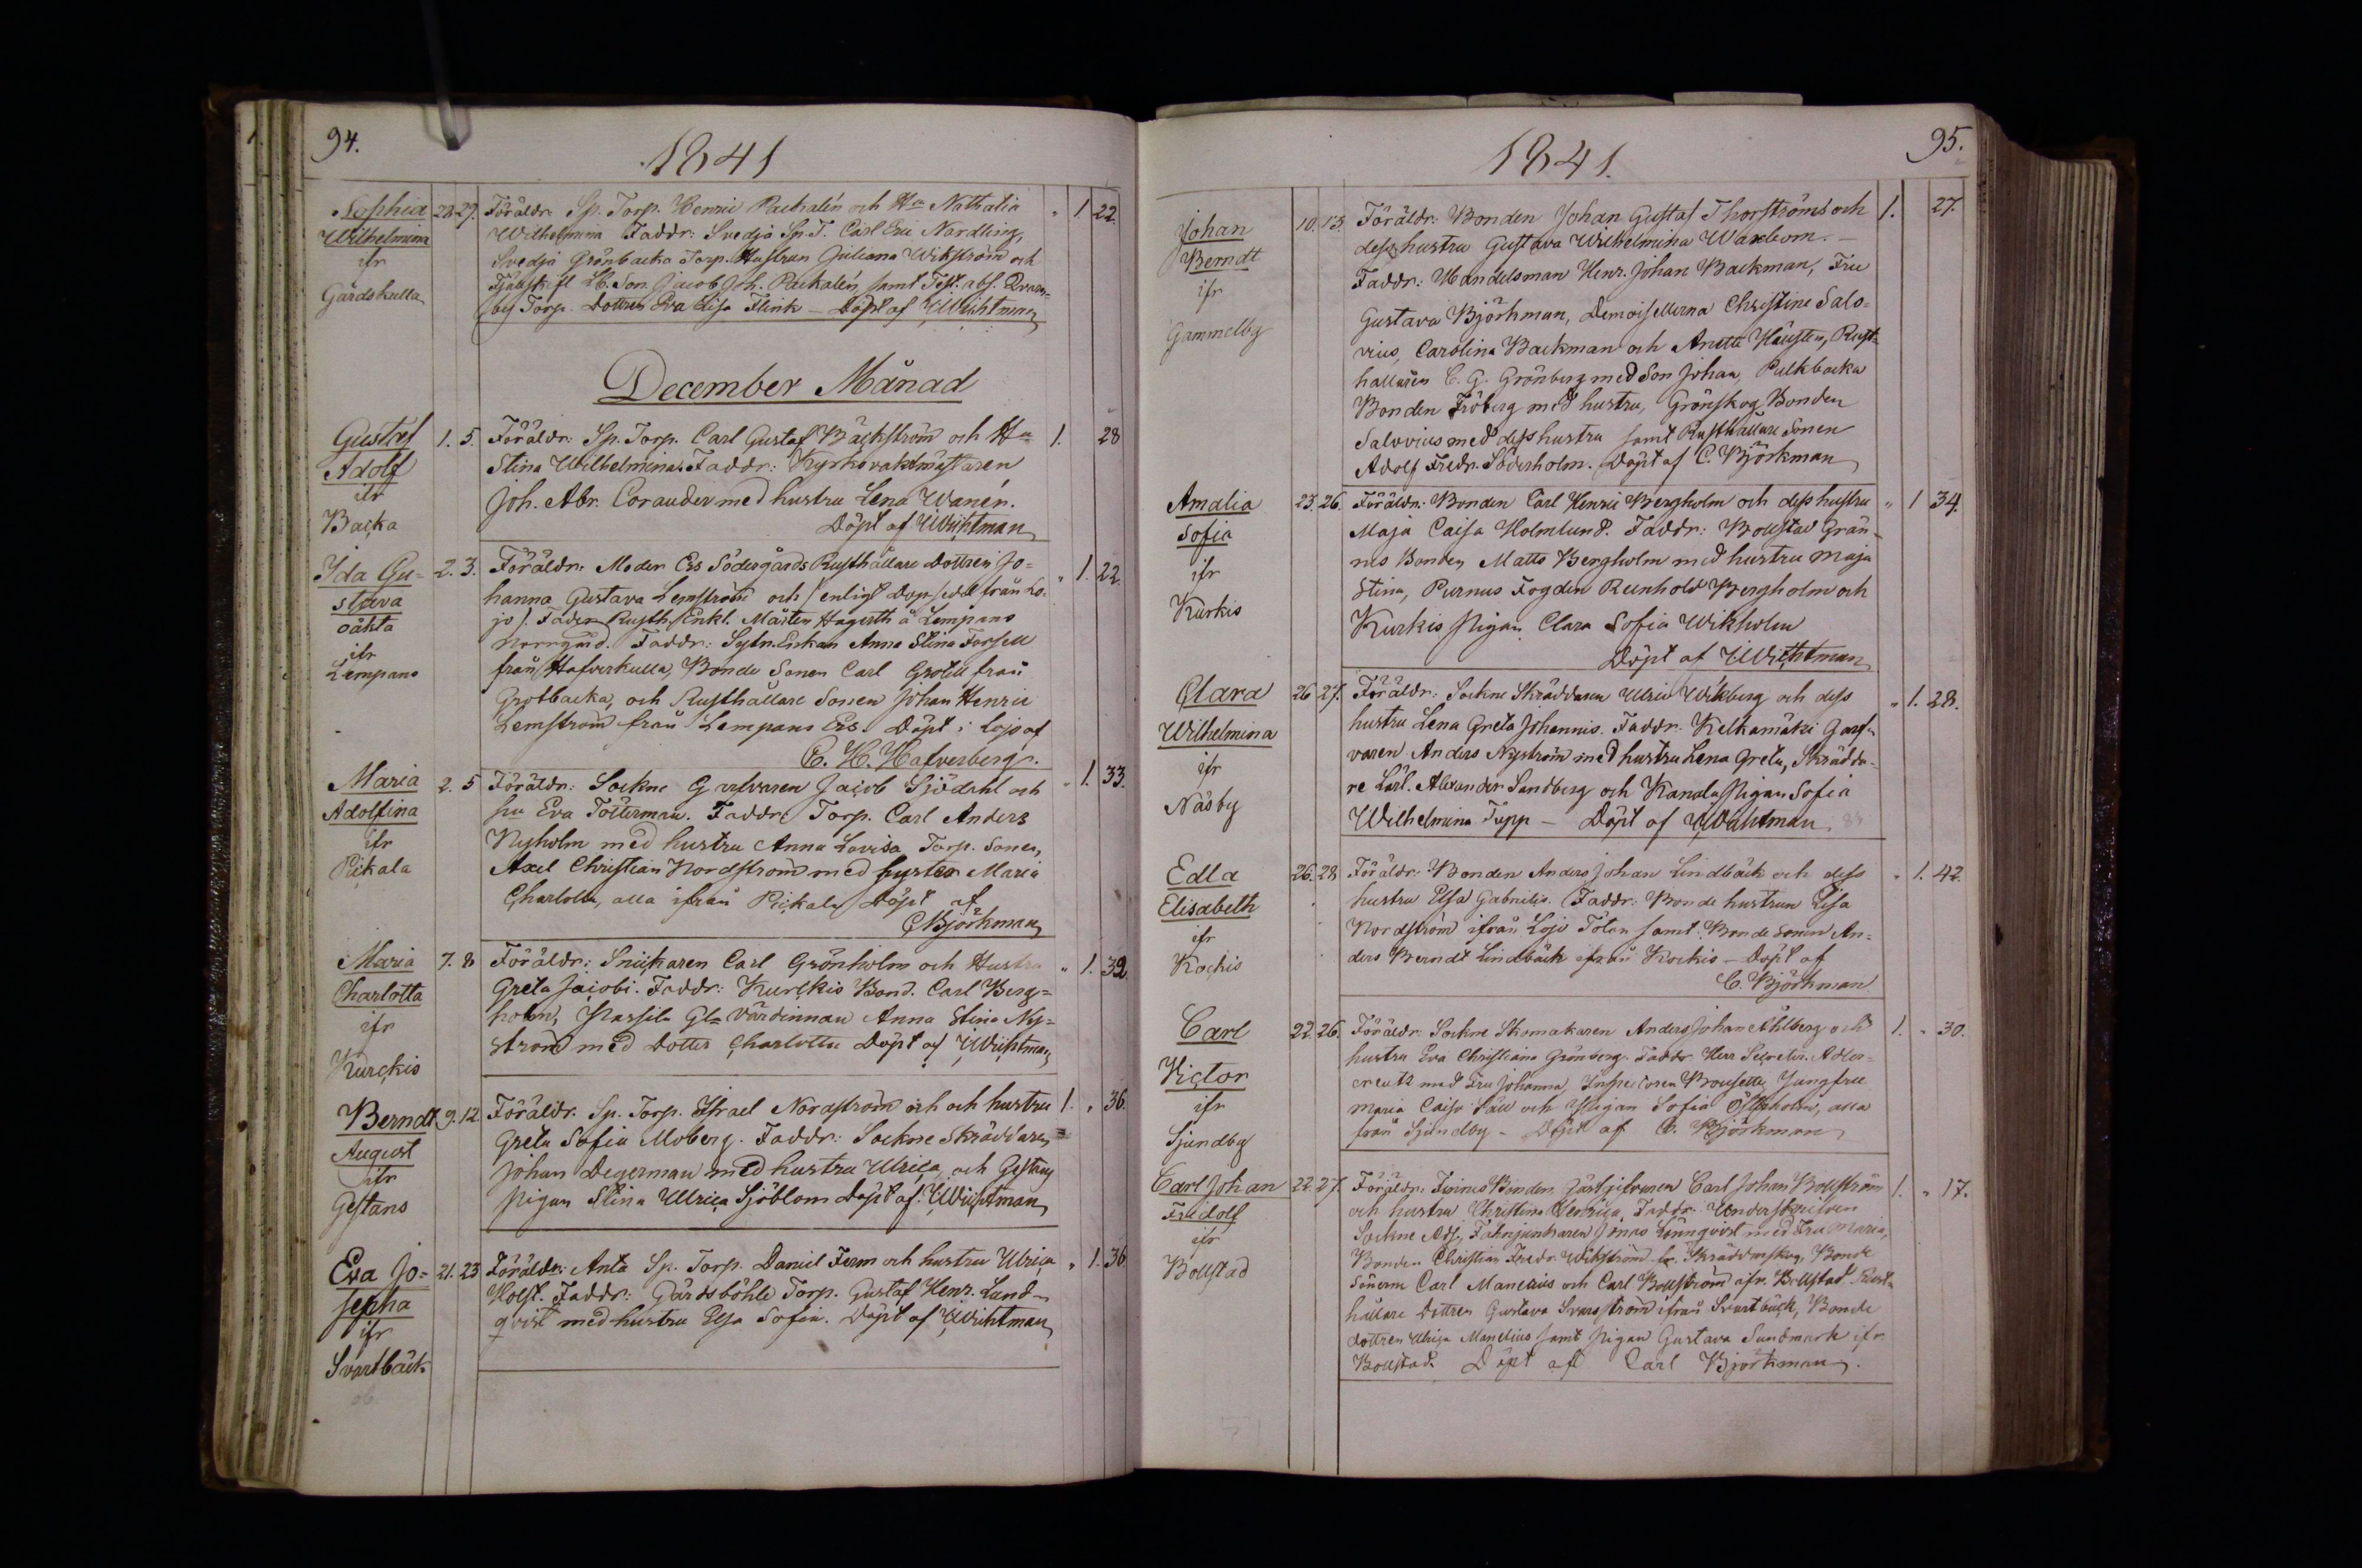 94.
1841
Sophia
Wilhelmina
ifr
Gårdskulla
28. 29.
Föräldr. Sp. Torp. Henric Packalén och Hu Nathalia
Wilhelmina Faddr: Svedja Sp. T. Carl Eric Nordling,
Svedja Grönbacka Torp. Hustrun Juliana Wikström och
Son Jacob Joh. Packalén, samt
by Torp. Dottren Eva Lisa Flink — Döpt af Wichtman
" 1 22.
December Månad
Gustaf
Adolf
ifr
Backa
1. 5.
Föräldr: Sp. Torp. Carl Gustaf Bäckström och Hu
Stina Wilhelmina. Faddr: Kyrkovaktmästaren
Joh. Abr. Corander med hustru Lena Wanén.
Döpt af Wichtman
1. 28
Ida Gu=
stava
oäkta
ifr
Lempans
2. 3.
Föräldr. Moder Ers Södergårds Rusthållare Dottren Jo=
hanna Gustava Lemström och /enligt Dopsedel från Lo-
jo/. Fader Rusth. Enkl. Mårten Hagerth å Lempans
Norrgård. Faddr: Sytn. Enkan Anna Stina Forsell
från Hafverkulla, Bonde Sonen Carl Grotell från
Grotbacka, och Rusthållare Sonen Johan Henric
Lemström från Lempans Ers. Döpt i Lojo af
C. H. Hafverberg.
" 1. 22.
Maria
Adolfina
ifr
Pickala
2. 5
Föräldr: Sockne Garfvaren Jacob Sjödahl och
hu Eva Tötterman. Faddr: Torp. Carl Anders
Nyholm med hustru Anna Lovisa, Torp. Sonen
Axel Christian Nordström med syster Maria
Charlotta, alla ifrån Pickala Döpt af
C Björkman
" 1. 33.
Maria
Charlotta
ifr
Kurckis
7. 8
Föräldr: Snickaren Carl Grönholm och Hustru
Greta Jacobi. Faddr: Kurckis Bond. Carl Berg=
holm, Passila Gla Värdinnan Anna Stina Ny=
ström med Dotter Charlotta Döpt af Wichtman
" 1. 32
Berndt
August
ifr
Gestans
9. 12.
Föräldr. Sp. Torp. Israel Nordström och och hustru
Greta Sofia Moberg. Faddr: Sockne Skräddaren
Johan Degerman med hustru Ulrica, och Gestans
Pigan Stina Ulrica Sjöblom Döpt af Wichtman
1. " 36.
Eva Jo=
sepha
ifr
Svartbäck
21. 23
Föräldr: Anta Sp. Torp. Daniel Ferm och hustru Ulrica
Holst. Faddr: Gårdsböhle Torp. Gustaf Henr. Lund=
qvist med hustru Elsa Sofia. Döpt af Wichtman
" 1. 36
95.
1841.
Johan
Berndt
ifr
Gammelby
10. 13.
Föräldr: Bonden Johan Gustaf Thorström och
dess hustru Gustava Wilhelmina Waxbom. —
Faddr: Handelsman Henr. Johan Backman, Fru
Gustava Björkman, Demoisellerna Christine Salo=
vius, Carolina Backman och Anette Häusten, Rust=
hållaren C. G. Grönberg med Son Johan, Pulkbacka
Bonden Fröberg med hustru, Grönskog Bonden
Salovius med dess hustru samt Rusthållare Sonen
Adolf Fredr. Söderholm. Döpt af C. Björkman
1. 27.
Amalia
Sofia
ifr
Kurkis
23. 26.
Föräldr: Bonden Carl Henric Bergholm och dess hustru
Maja Caisa Holmlund. Faddr: Bollstad Grän-
nes Bonden Matts Bergholm med hustru Maja
Stina, Purnus Fogden Reinhold Bergholm och
Kurkis Pigan Clara Sofia Wikholm
Döpt af Wichtman
" 1 34.
Clara
Wilhelmina
ifr
Näsby
26 27.
Föräldr: Sockne Skräddaren Ulric Wikberg och dess
hustru Lena Greta Johannis. Faddr. Kelkamäki Garf-
varen Anders Nyström med hustru Lena Greta, Skrädda-
re Lärl. Alexander Sandberg och Kanala Pigan Sofia
Wilhelmina Tupp — Döpt af Wichtman
" 1. 28.
Edla
Elisabeth
ifr
Kockis
26. 28
Föräldr: Bonden Anders Johan Lindbäck och dess
hustru Elsa Gabrielis. Faddr: Bonde hustrun Lisa
Nordström ifrån Lojo Tötar samt Bonde Sonen An=
ders Berndt Lindbäck ifrån Kockis — Döpt af
C. Björkman
" 1. 42.
Carl
Victor
ifr
Sjundby
22. 26.
Föräldr: Sockne Skomakaren Anders Johan Ahlberg och
hustru Eva Christiana Grönberg. Faddr. Herr Secreter. Adler=
creutz med Fru Johanna, Inspectoren Bousette, Jungfru
Maria Caisa Säll och Pigan Sofia Österholm, alla
från Sjundby — Döpt af C. Björkman
1. " 30.
Carl Johan
Frudolf
ifr
Bollstad
22. 27.
Föräldr: Bonden Gästgifvaren Carl Johan Bollström
och hustru Christina Henrica, Faddr. Underskrifven
Sockne Adj. Fahnjunkaren Jonas Lönnqvist med Fru Maria,
Bonden Christian Fredr. Wikström fr. Skräddarskog, Bonde
Sönerna Carl Manelius och Carl Bollström ifr. Bollstad Rust=
hållare Dottren Gustava Svarsström ifrån Svartbäck, Bonde
dottren Ulrica Manelius samt Pigan Gustava Sundmark ifr
Bollstad. Döpt af Carl Björkman.
1. " 17.